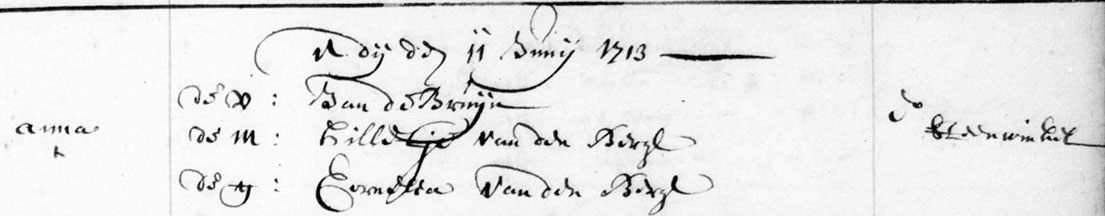 A dij den 11 Junij 1713
de V : Jan de Bruijn
anna
de M : Hilletje van den Bergh
de G : Cornelia van den Bergh
Do
Steenwinkel